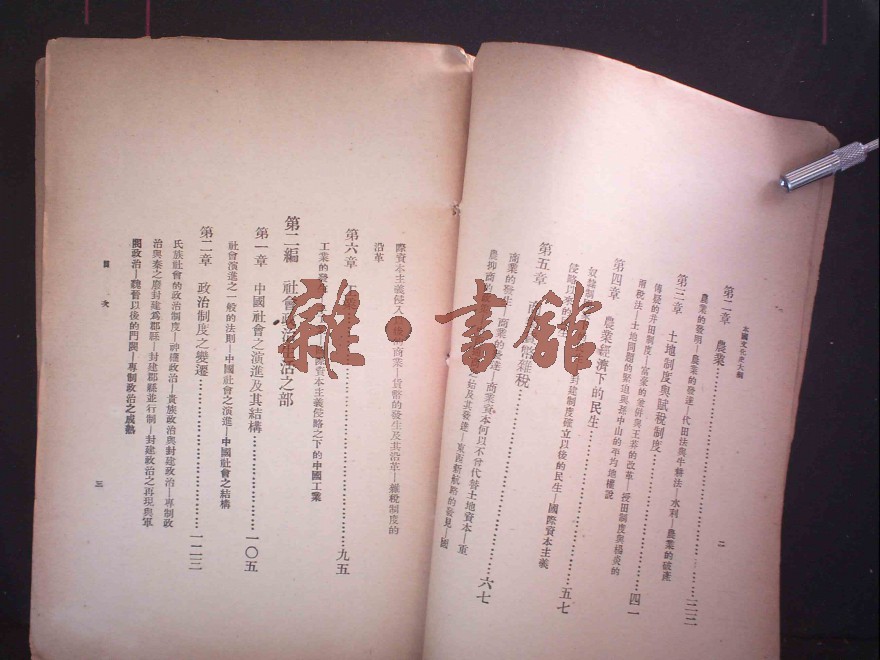 本國文化史大綱
二
第二章 農業……三三
農業的發明—農業的發達—代田法與牛耕法—水利—農業的破產
第三章 土地制度與賦稅制度……四一
傳疑的井田制度—富豪的兼併與王莽的改革—授田制度與楊炎的
兩稅法—土地問題的緊迫與孫中山的平均地權說
第四章 農業經濟下的民生……五七
奴隸 封建制度確立以後的民生—國際資本主義
侵略以來的
第五章 商 幣雜稅……六七
商業的發生—商業的發達—商業資本何以不曾代替土地資本—重
農抑商的 始及其發達—東西新航路的發見—國
際資本主義侵入 後的商業—貨幣的發生及其沿革—雜稅制度的
沿革
第六章 工……九五
工業的發 國際資本主義侵略之下的中國工業
第二編 社會政治生活之部
第一章 中國社會之演進及其結構……一〇五
社會演進之一般的法則—中國社會之演進—中國社會之結構
第二章 政治制度之變遷……一二三
氏族社會的政治制度—神權政治—貴族政治與封建政治—專制政
治與秦之廢封建爲郡縣—封建郡縣並行制—封建政治之再現與軍
閥政治—魏晉以後的門閥—專制政治之成熟
目次
三
雜·書館